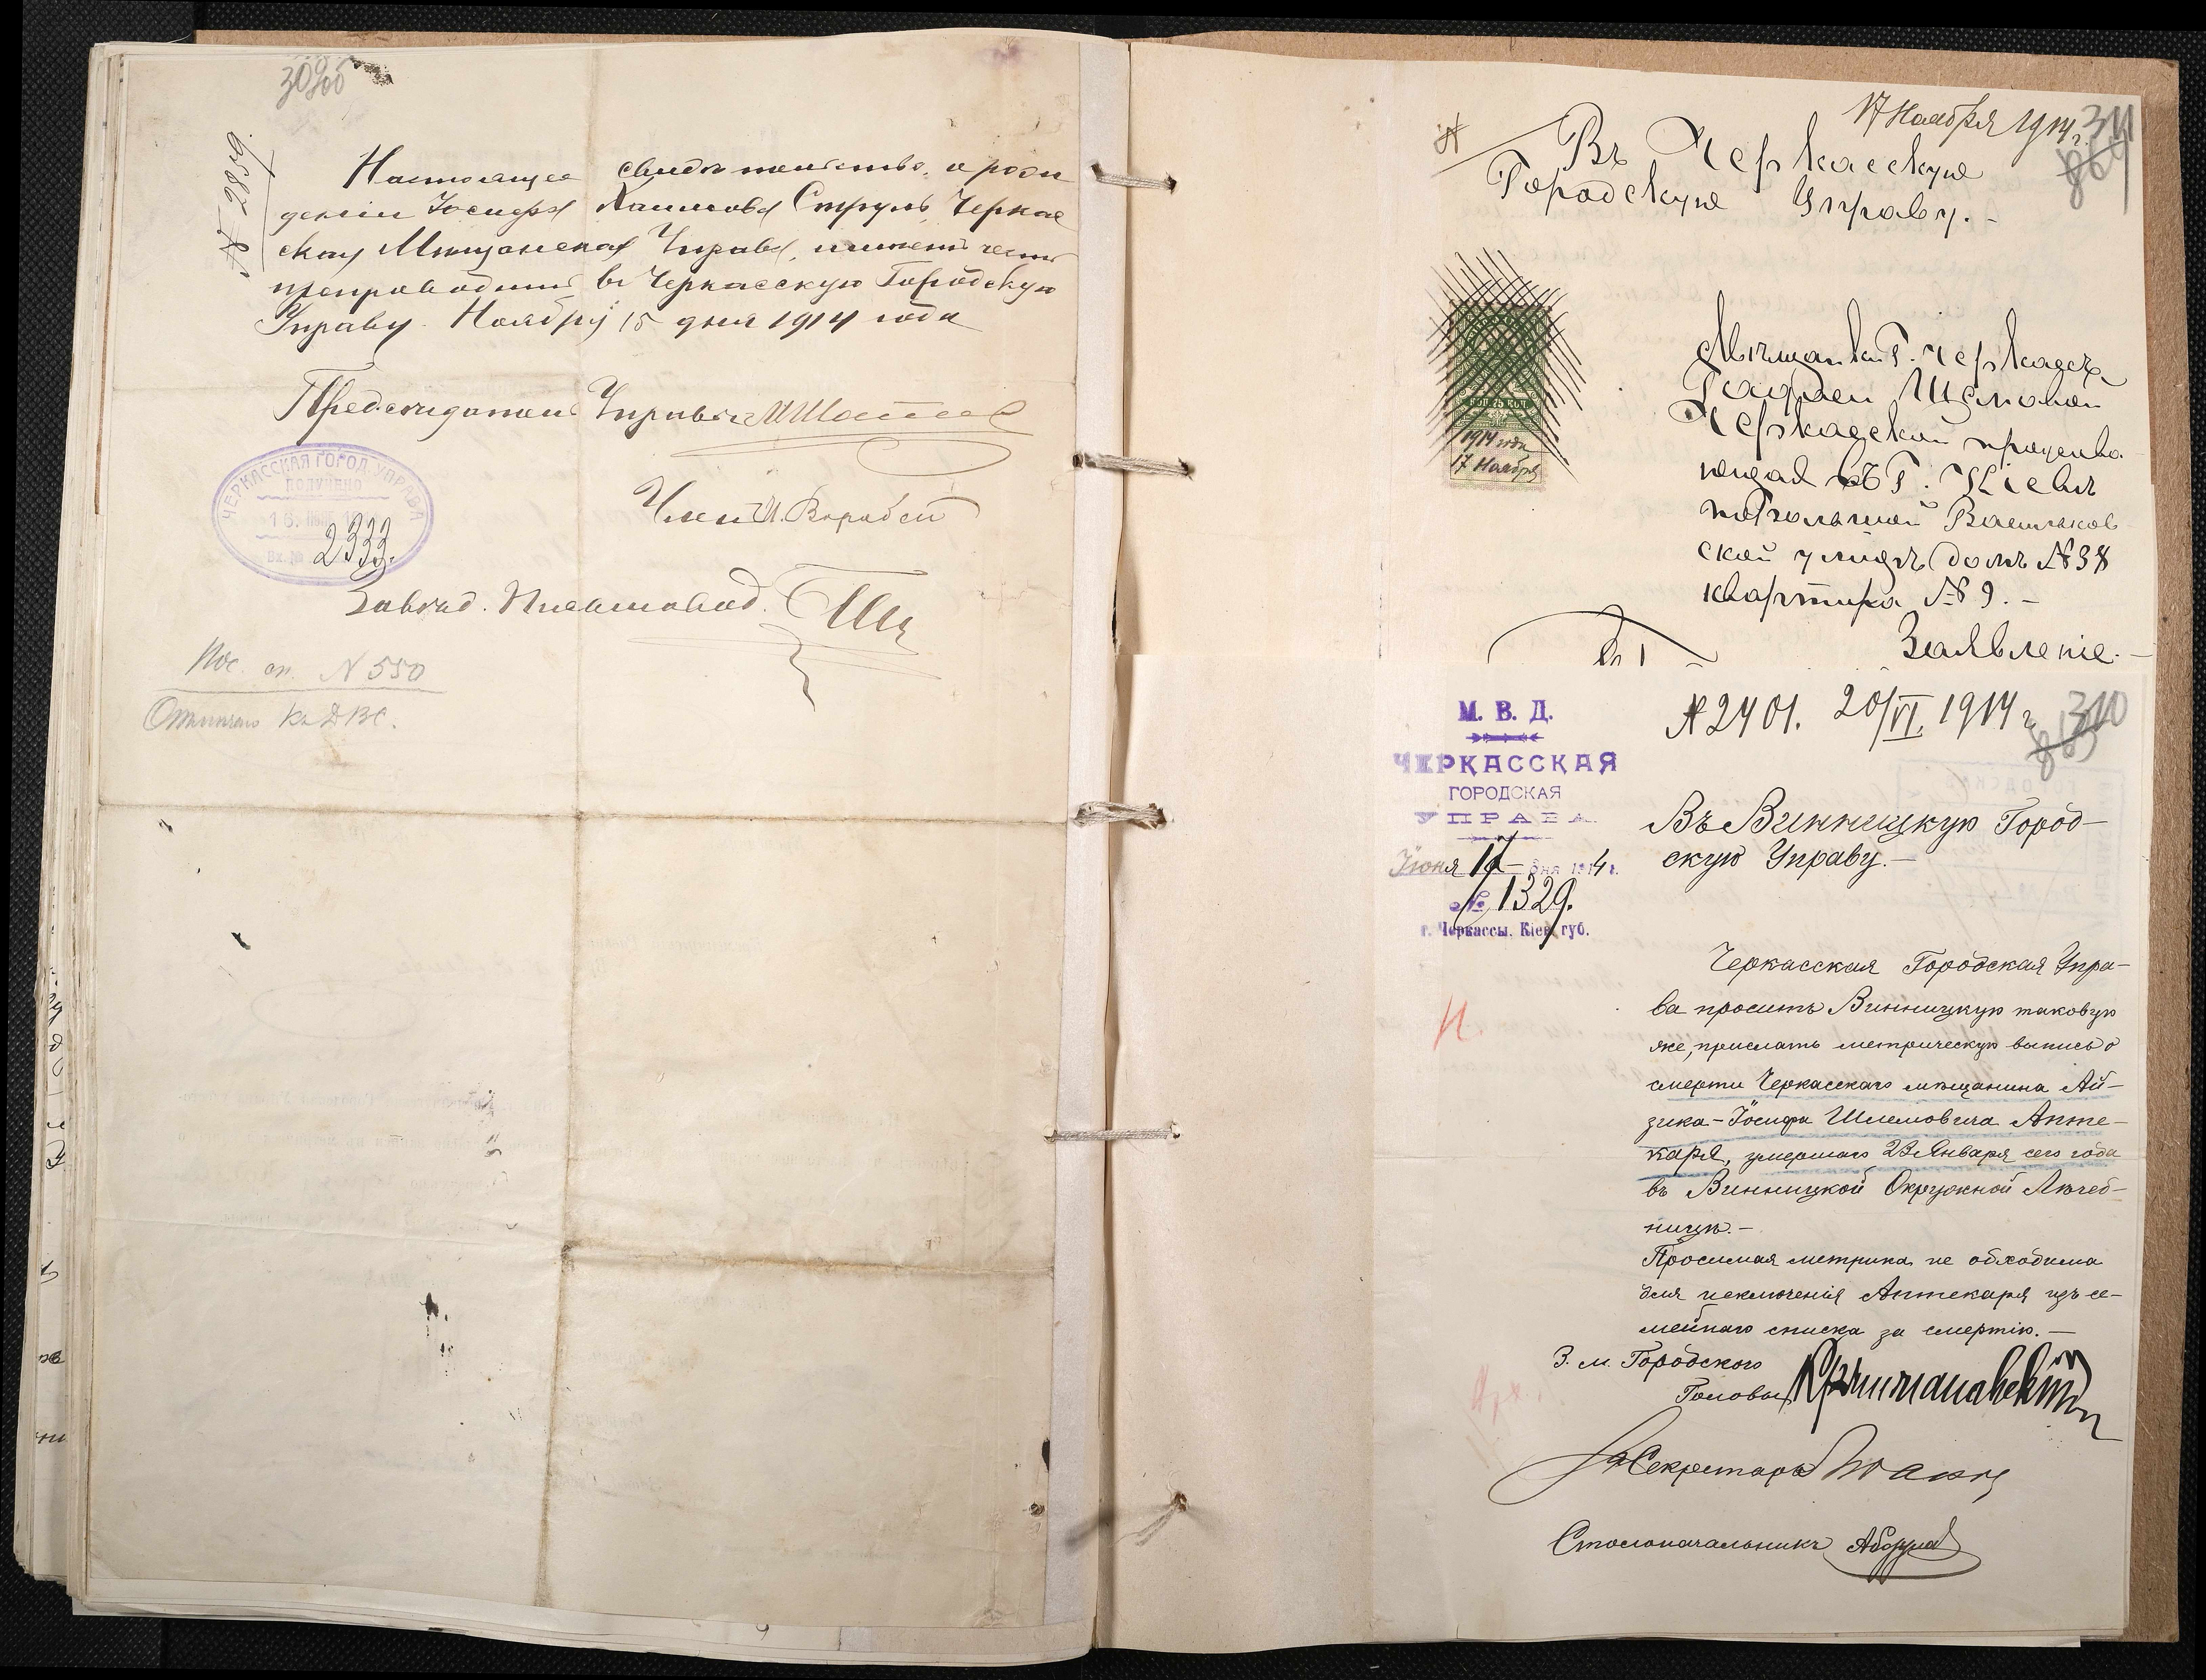 309об
№ 2959
Настоящее свидѣтельство, о рож
деніи Іосифа Хаимова Струль, Черкас
ская Мѣщанская Управа, имѣетъ честь
препроводить въ Черкасскую Городскую
Управу. Ноября 15 дня 1914 года
Предсѣдатель Управы
Членъ И. Воробей
Завѣд. Письмовод.
ЧЕРКАССКАЯ ГОРОД. УПРАВА
ПОЛУЧЕНО
Вх. № 2333.
Пос. сп. № 550
17 Ноября 1914 г. 311
Въ Черкасскую
Городскую Управу.-
Мѣщанки Г. Черкассъ
Черкасской прожива
ющая въ Г. Кіевѣ
по Большой Васильков
ской улицѣ домъ № 38
квартира № 9.-
Заявленіе.-
75 КОП.
1914 года
17 Ноября
М. В. Д.
ЧЕРКАССКАЯ
ГОРОДСКАЯ
УПРАВА
Іюня дня 1914 г.
№ 1329.
г. Черкассы, Кіев. губ.
№ 2401. 20/VI 1914 г. 310
Въ Винницкую Город-
скую Управу.-
Черкасская Городская Упра-
ва проситъ Винницкую таковую
же, прислать метрическую выпись о
смерти Черкасскаго мѣщанина Ай-
зика-Іосифа Шлемовича Апте-
каря, умершаго 23 Января сего года
въ Винницкой Окружной Лѣчеб-
ницѣ.-
Просимая метрика не обходима
для исключенія Аптекаря изъ се-
мейнаго списка за смертію.-
З. м. Городского
Головы
Секретарь
Столоначальникъ